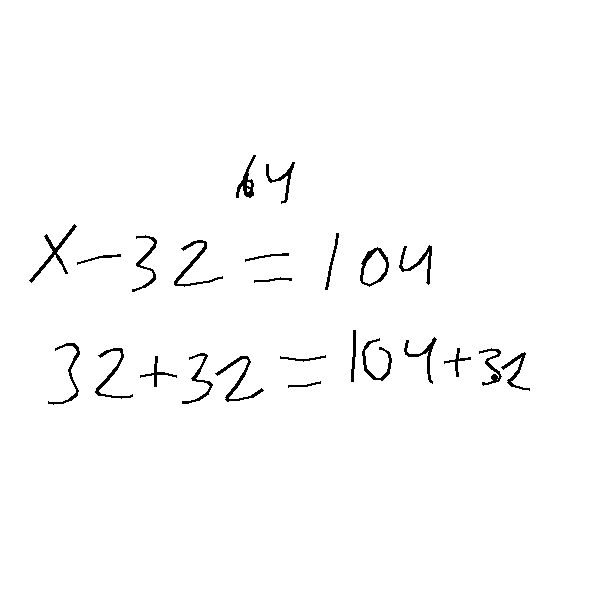 64
x-32=104
32+32=104+32